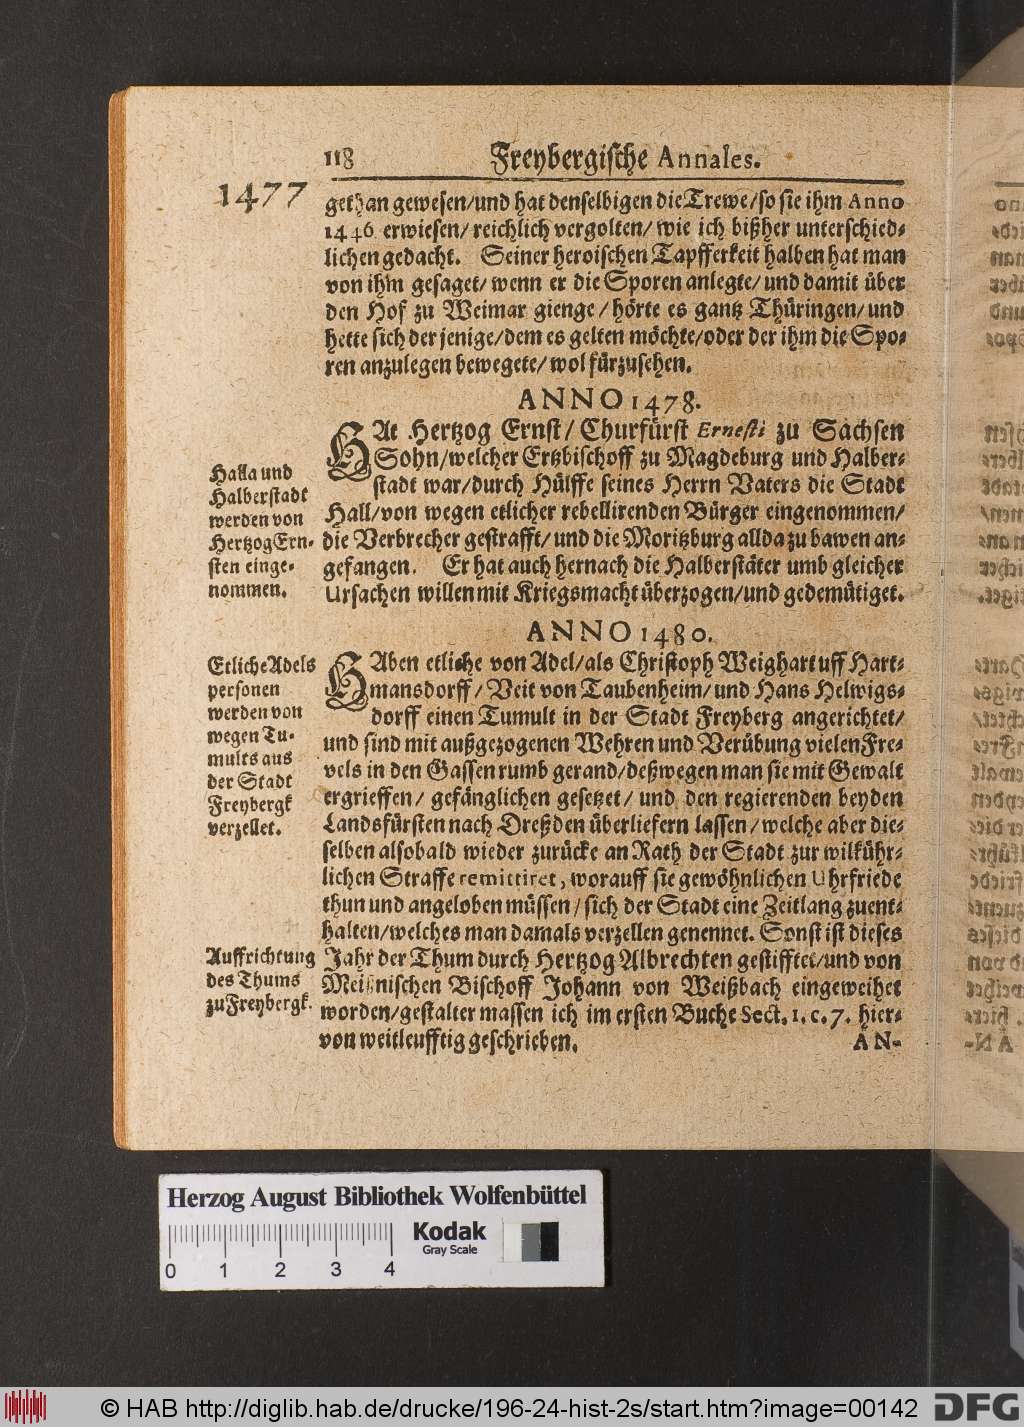 118 Freybergische Annales.
1477
gethan gewesen/und hat denselbigen die Trewe/so sie ihm Anno
1446 erwiesen/reichlich vergolten/wie ich bißher unterschied-
lichen gedacht. Seiner heroischen Tapfferkeit halben hat man
von ihm gesaget/wenn er die Sporen anlegte/und damit über
den Hof zu Weimar gienge/hörte es gantz Thüringen/und
hette sich der jenige/dem es gelten möchte/oder der ihm die Spo-
ren anzulegen bewegete/wol fürzusehen.
ANNO 1478.
HAt Hertzog Ernst/Churfürst Ernesti zu Sachsen
Sohn/welcher Ertzbischoff zu Magdeburg und Halber-
stadt war/durch Hülffe seines Herrn Vaters die Stadt
Hall/von wegen etlicher rebellirenden Bürger eingenommen/
die Verbrecher gestrafft/und die Moritzburg allda zu bawen an-
gefangen. Er hat auch hernach die Halberstäter umb gleicher
Ursachen willen mit Kriegsmacht überzogen/und gedemütiget.
Halla und
Halberstadt
werden von
Hertzog Ern-
sten einge-
nommen.
ANNO 1480.
HAben etliche von Adel/als Christoph Weighart uff Hart-
mansdorff/Veit von Taubenheim/und Hans Helwigs-
dorff einen Tumult in der Stadt Freyberg angerichtet/
und sind mit außgezogenen Wehren und Verübung vielen Fre-
vels in den Gassen rumb gerand/deßwegen man sie mit Gewalt
ergrieffen/gefänglichen gesetzet/und den regierenden beyden
Landsfürsten nach Dreßden überliefern lassen/welche aber die-
selben alsobald wieder zurücke an Rath der Stadt zur wilkühr-
lichen Straffe remittiret, worauff sie gewöhnlichen Uhrfriede
thun und angeloben müssen/sich der Stadt eine Zeitlang zuent-
halten/welches man damals verzellen genennet. Sonst ist dieses
Jahr der Thum durch Hertzog Albrechten gestifftet/und von
Meißnischen Bischoff Johann von Weißbach eingeweihet
worden/gestalter massen ich im ersten Buche Sect. 1. c. 7. hier-
von weitleufftig geschrieben.
AN-
Etliche Adels
personen
werden von
wegen Tu-
mults aus
der Stadt
Freybergk
verzellet.
Auffrichtung
des Thums
zu Freybergk.
Herzog August Bibliothek Wolfenbüttel
Kodak
Gray Scale
0 1 2 3 4
© HAB http://diglib.hab.de/drucke/196-24-hist-2s/start.htm?image=00142
DFG